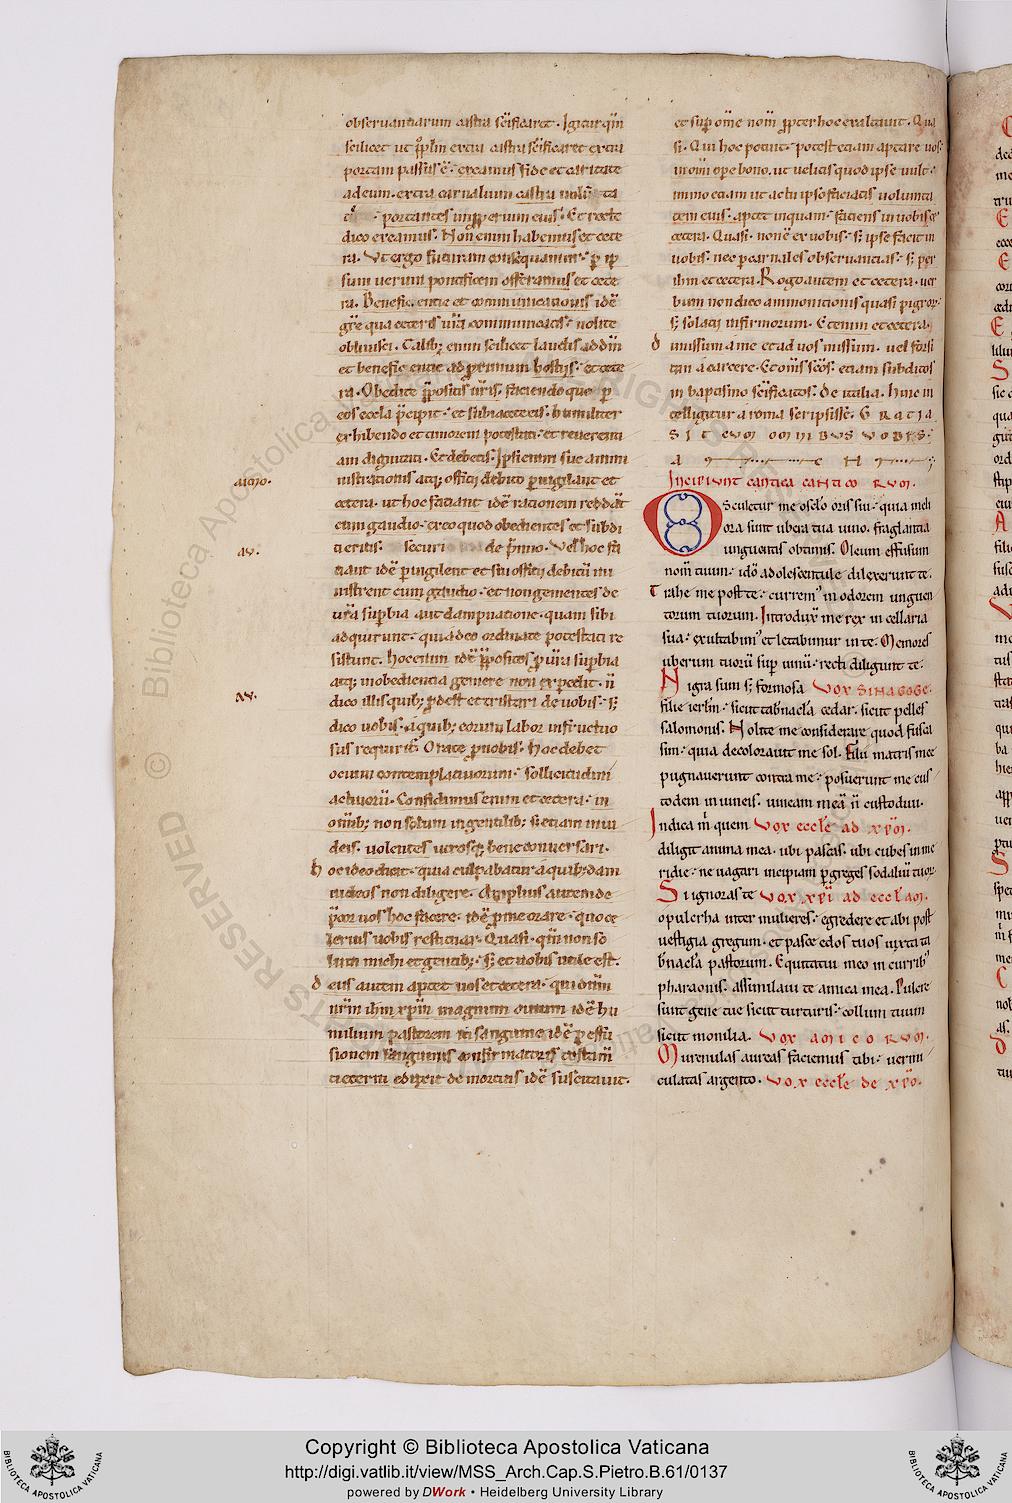 observantiarum castra scificaret. Igitur qm̄
scilicet ut pp̄lm extra castra scificaret extra
portam passus ē. exeamus fide et caritate
ad eum. extra carnalium castra
portantes improperium eius. Et recte
dico exeamus. Non enim habemus et cete
ra. Ut ergo futuram consequamur. per ip
sum verum pontificem offeramus et cete
ra. Beneficentie et communicationis idē
gr̄e qua ceteris vr̄a communicatis. nolite
oblivisci. Talibꝫ enim scilicet laudis ad dm̄
et beneficentie ad proximum hostiis. et cete
ra. Obedite p̄positis vr̄is. faciendo que per
eos eccła p̄cipit. et subiacetereis. humiliter
exhibendo et timorem potestati. et reverenti
am dignitati. Et debetis. Ipsi enim sue ammi
nistrationis atqꝫ officii debito pervigilant et
cetera. ut hoc faciant idē rationem reddāt
cum gaudio. creo quod obedientes et subdi
ti eritis. securi de p̄mio. Vel hoc fa
ciant idē pervigilent et sui officii debitū mi
nistrent cum gaudio. et non gementes de
vr̄a supbia aut dampnatione. quam sibi
adquirunt. quia deo ordinate potestati re
sistunt. Hoc enim idē p̄positos p vr̄a supbia
atqꝫ inobedientia gemere non expedit. n̄
dico illis quibꝫ pdest et tristari de vobis. sꝫ
dico vobis. a quibꝫ eorum labor infructuo
sus requirit̄. Orate p nobis. Hoc debet
ocium contemplativorum. sollicitudini
activorū. Confidimus enim et cetera. in
om̄ibꝫ non solum in gentilibꝫ. sꝫ etiam in iu
deis. volentes utrosqꝫ bene conversari.
hoc ideo dicit. quia culpabatur a quibꝫdam
iudeos non diligere. Amplius autem de
p̄cor vos hoc facere. idē p me orare. quo ce
lerius vobis restituar. Quasi. qm̄ non so
lum michi et gentibꝫ. sꝫ et vobis utile est.
deus autem aptet vos et cetera. qui dnm̄
nr̄m ihm xp̄m magnum ovium idē hu
milium pastorem in sanguine idē p effu
sionem sanguinis confirmatoris testam̄
ti eterni eduxit de mortuis idē suscitavit.
aimo.
av.
av.
et sup om̄e nom̄ ppter hoc exaltavit. Qua
si. Qui hoc potuit. potest etiam aptare vos
in om̄i ope bono. ut velitis quod ipse vult.
immo etiam ut actu ipso faciatis volunta
tem eius. aptet inquam. faciens in vobis et
cetera. Quasi. non ē ex vobis. sꝫ ipse facit in
vobis. nec p carnales observantias. sꝫ per
ihm et cetera. Rogo autem et cetera. ver
bum non dico ammonitionis quasi pigrorꝫ.
sꝫ solatii infirmorum. Etenim et cetera.
dimissum a me et ad vos missum. vel forsi
tan a carcere. Et om̄s sc̄os. etiam subditos
in baptismo scificatos. de italia. Hinc in
telligitur a roma scripsisse. GRATIA
SIT CUM OMNIBUS VOBIS.
A M E N
Incipiunt cantica canticorum.
Osculetur me osculo oris sui. quia meli
ora sunt ubera tua vino. fraglantia
unguentis obtimis. Oleum effusum
nom̄ tuum. ido adolescentule dilexerunt te.
Trahe me post te. curremꝰ in odorem unguen
torum tuorum. Introduxit me rex in cellaria
sua. exultabimꝰ et letabimur in te. Memores
uberum tuorū sup vinū. recti diligunt te.
Nigra sum sꝫ formosa VOX SINAGOGE.
filie ierłm. sicut tabnacła cedar. sicut pelles
salomonis. Nolite me considerare quod fusca
sim. quia decoloravit me sol. Filii matris mee
pugnaverunt contra me. posuerunt me cus
todem in vineis. vineam meā n̄ custodivi.
Indica m̄ quem vox eccłe ad xpm.
diligit anima mea. ubi pascas. ubi cubes in me
ridie. ne vagari incipiam p greges sodaliū tuorꝫ
Si ignoras te vox xpi ad eccłam.
o pulcherima inter mulieres. egredere et abi post
vestigia gregum. et pasce edos tuos iuxta ta
bnacła pastorum. Equitatui meo in curribꝰ
pharaonis. assimilavi te amica mea. Pulcre
sunt gene tue sicut turturis. collum tuum
sicut monilia. vox amicorum.
Murenulas aureas faciemus tibi. vermi
culatas argento. vox eccłe de xpo.
Copyright © Biblioteca Apostolica Vaticana
http://digi.vatlib.it/view/MSS_Arch.Cap.S.Pietro.B.61/0137
powered by DWork • Heidelberg University Library